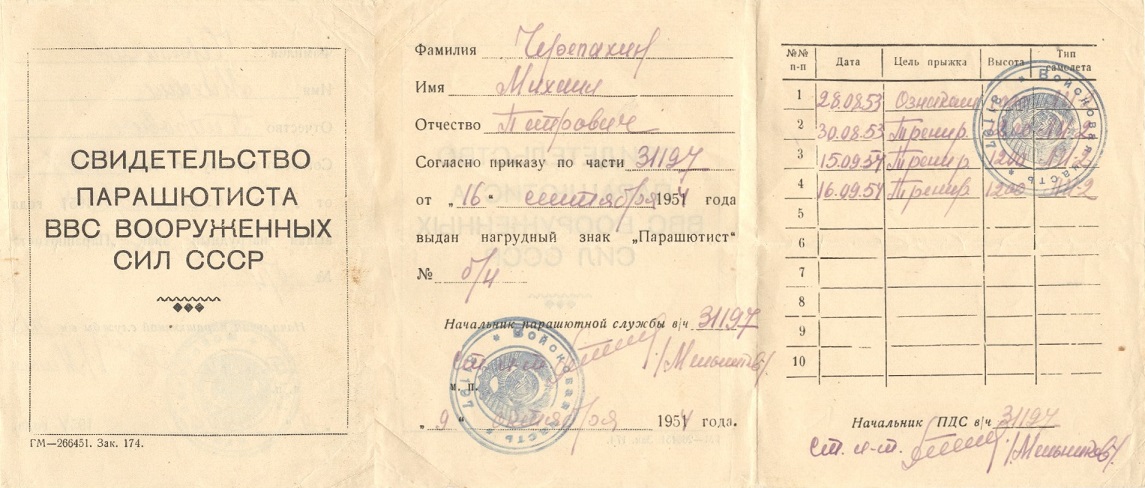 СВИДЕТЕЛЬСТВО
ПАРАШЮТИСТА
ВВС ВООРУЖЕННЫХ
СИЛ СССР
ГМ—266451. Зак. 174.
Фамилия Черепахин
Имя Михаил
Отчество Петрович
Согласно приказу по части 31197
от „16“ сентября 1954 года
выдан нагрудный знак „Парашютист“
№ б/н
Начальник парашютной службы в/ч 31197
ст. л-т. /Мельников/
м. п.
„9“ октября 1954 года.
Войсковая часть
№№ п-п Дата Цель прыжка Высота Тип самолета
1 28.08.53 Ознаком
2 30.08.53 Тренир ЛИ-2
3 15.09.54 Тренир 1200 ЛИ-2
4 16.09.54 Тренир 1200 ЛИ-2
5
6
7
8
9
10
Войсковая часть
Начальник ПДС в/ч 31197
ст. л-т. /Мельников/